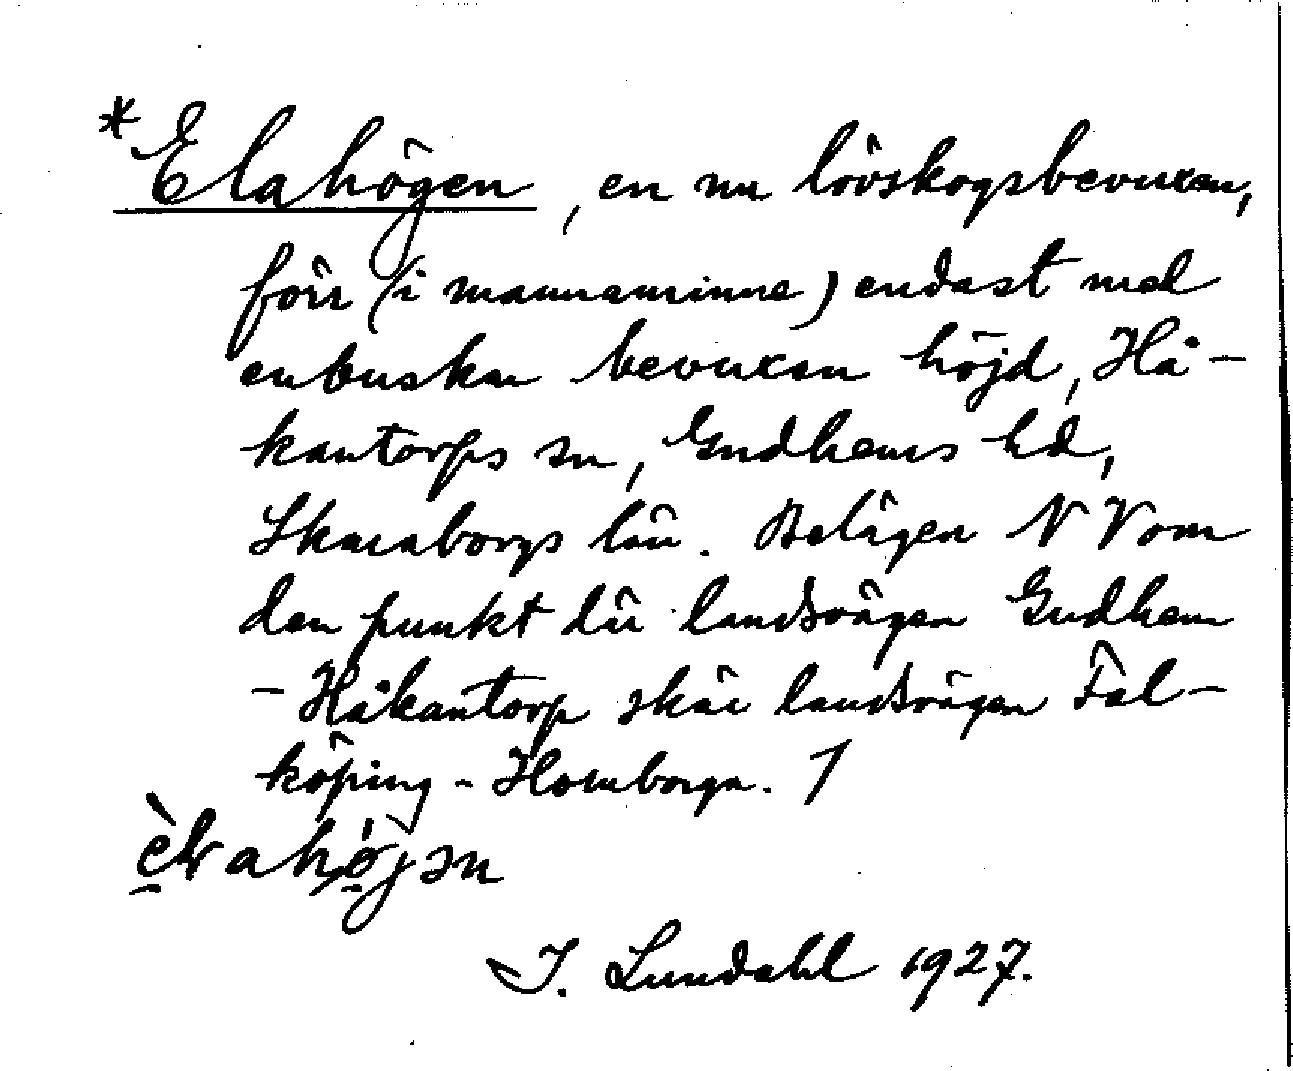 *Elahögen, en nu lövskogsbevuxen,
förr (i mannaminne) endast med
enbuskar bevuxen höjd, Hå-
kantorps sn, Gudhems hd,
Skaraborgs län. Belägen NV om
den punkt där landsvägen Gudhem
- Håkantorp skär landsvägen Fal-
köping - Hornborga.
I. Lundahl 1927.